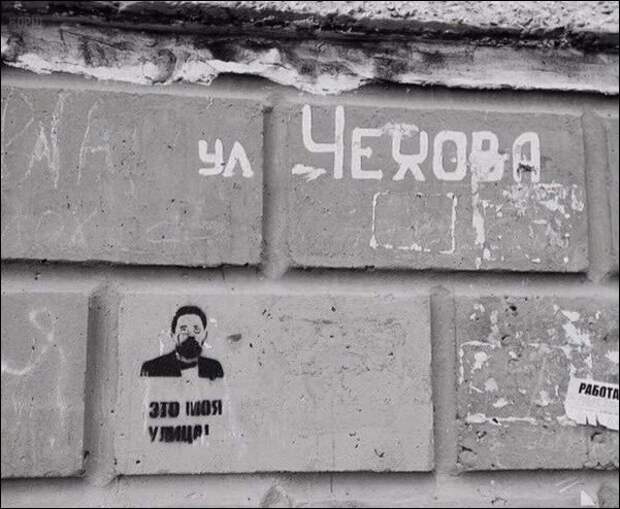 ул Чехова
ЭТО МОЯ
УЛИЦА!
РАБОТА